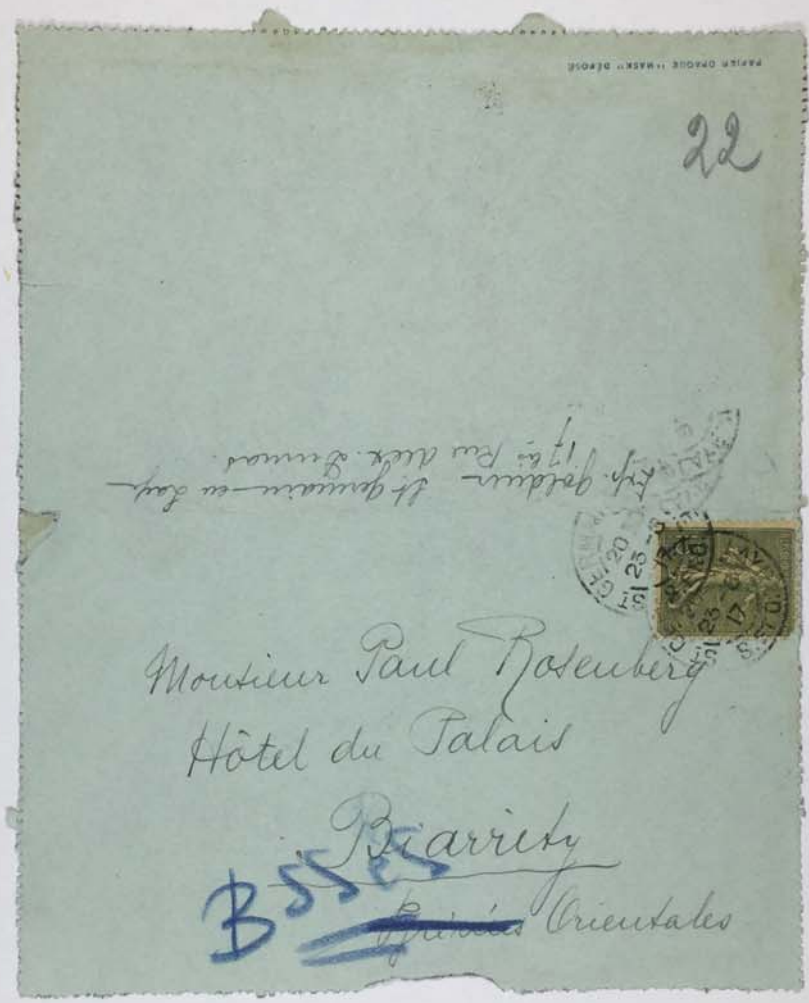 PAPIER OPAQUE "MASK" DÉPOSÉ
22
Exp. Goldner St Germain-en-Laye
17 bis Rue Alex. Dumas.
Monsieur Paul Rosenberg
Hôtel du Palais
Biarritz
Bsses
Pyrénées Orientales
GERM
20
23 -6
LAY
23 -6
17